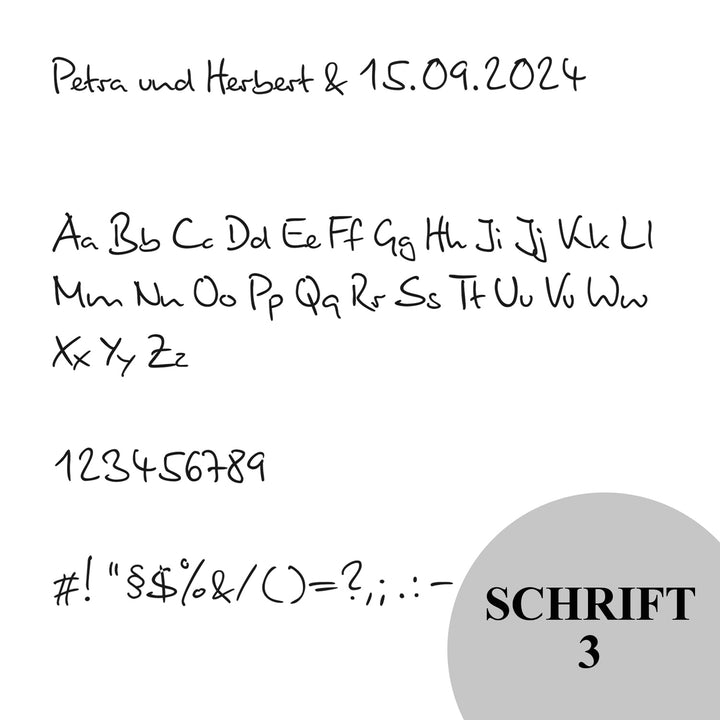 Petra und Herbert & 15.09.2024
Aa Bb Cc Dd Ee Ff Gg Hh Ii Jj Kk Ll
Mm Nn Oo Pp Qq Rr Ss Tt Uu Vv Ww
Xx Yy Zz
123456789
#! "§$%&/()=?,;.:-
SCHRIFT
3